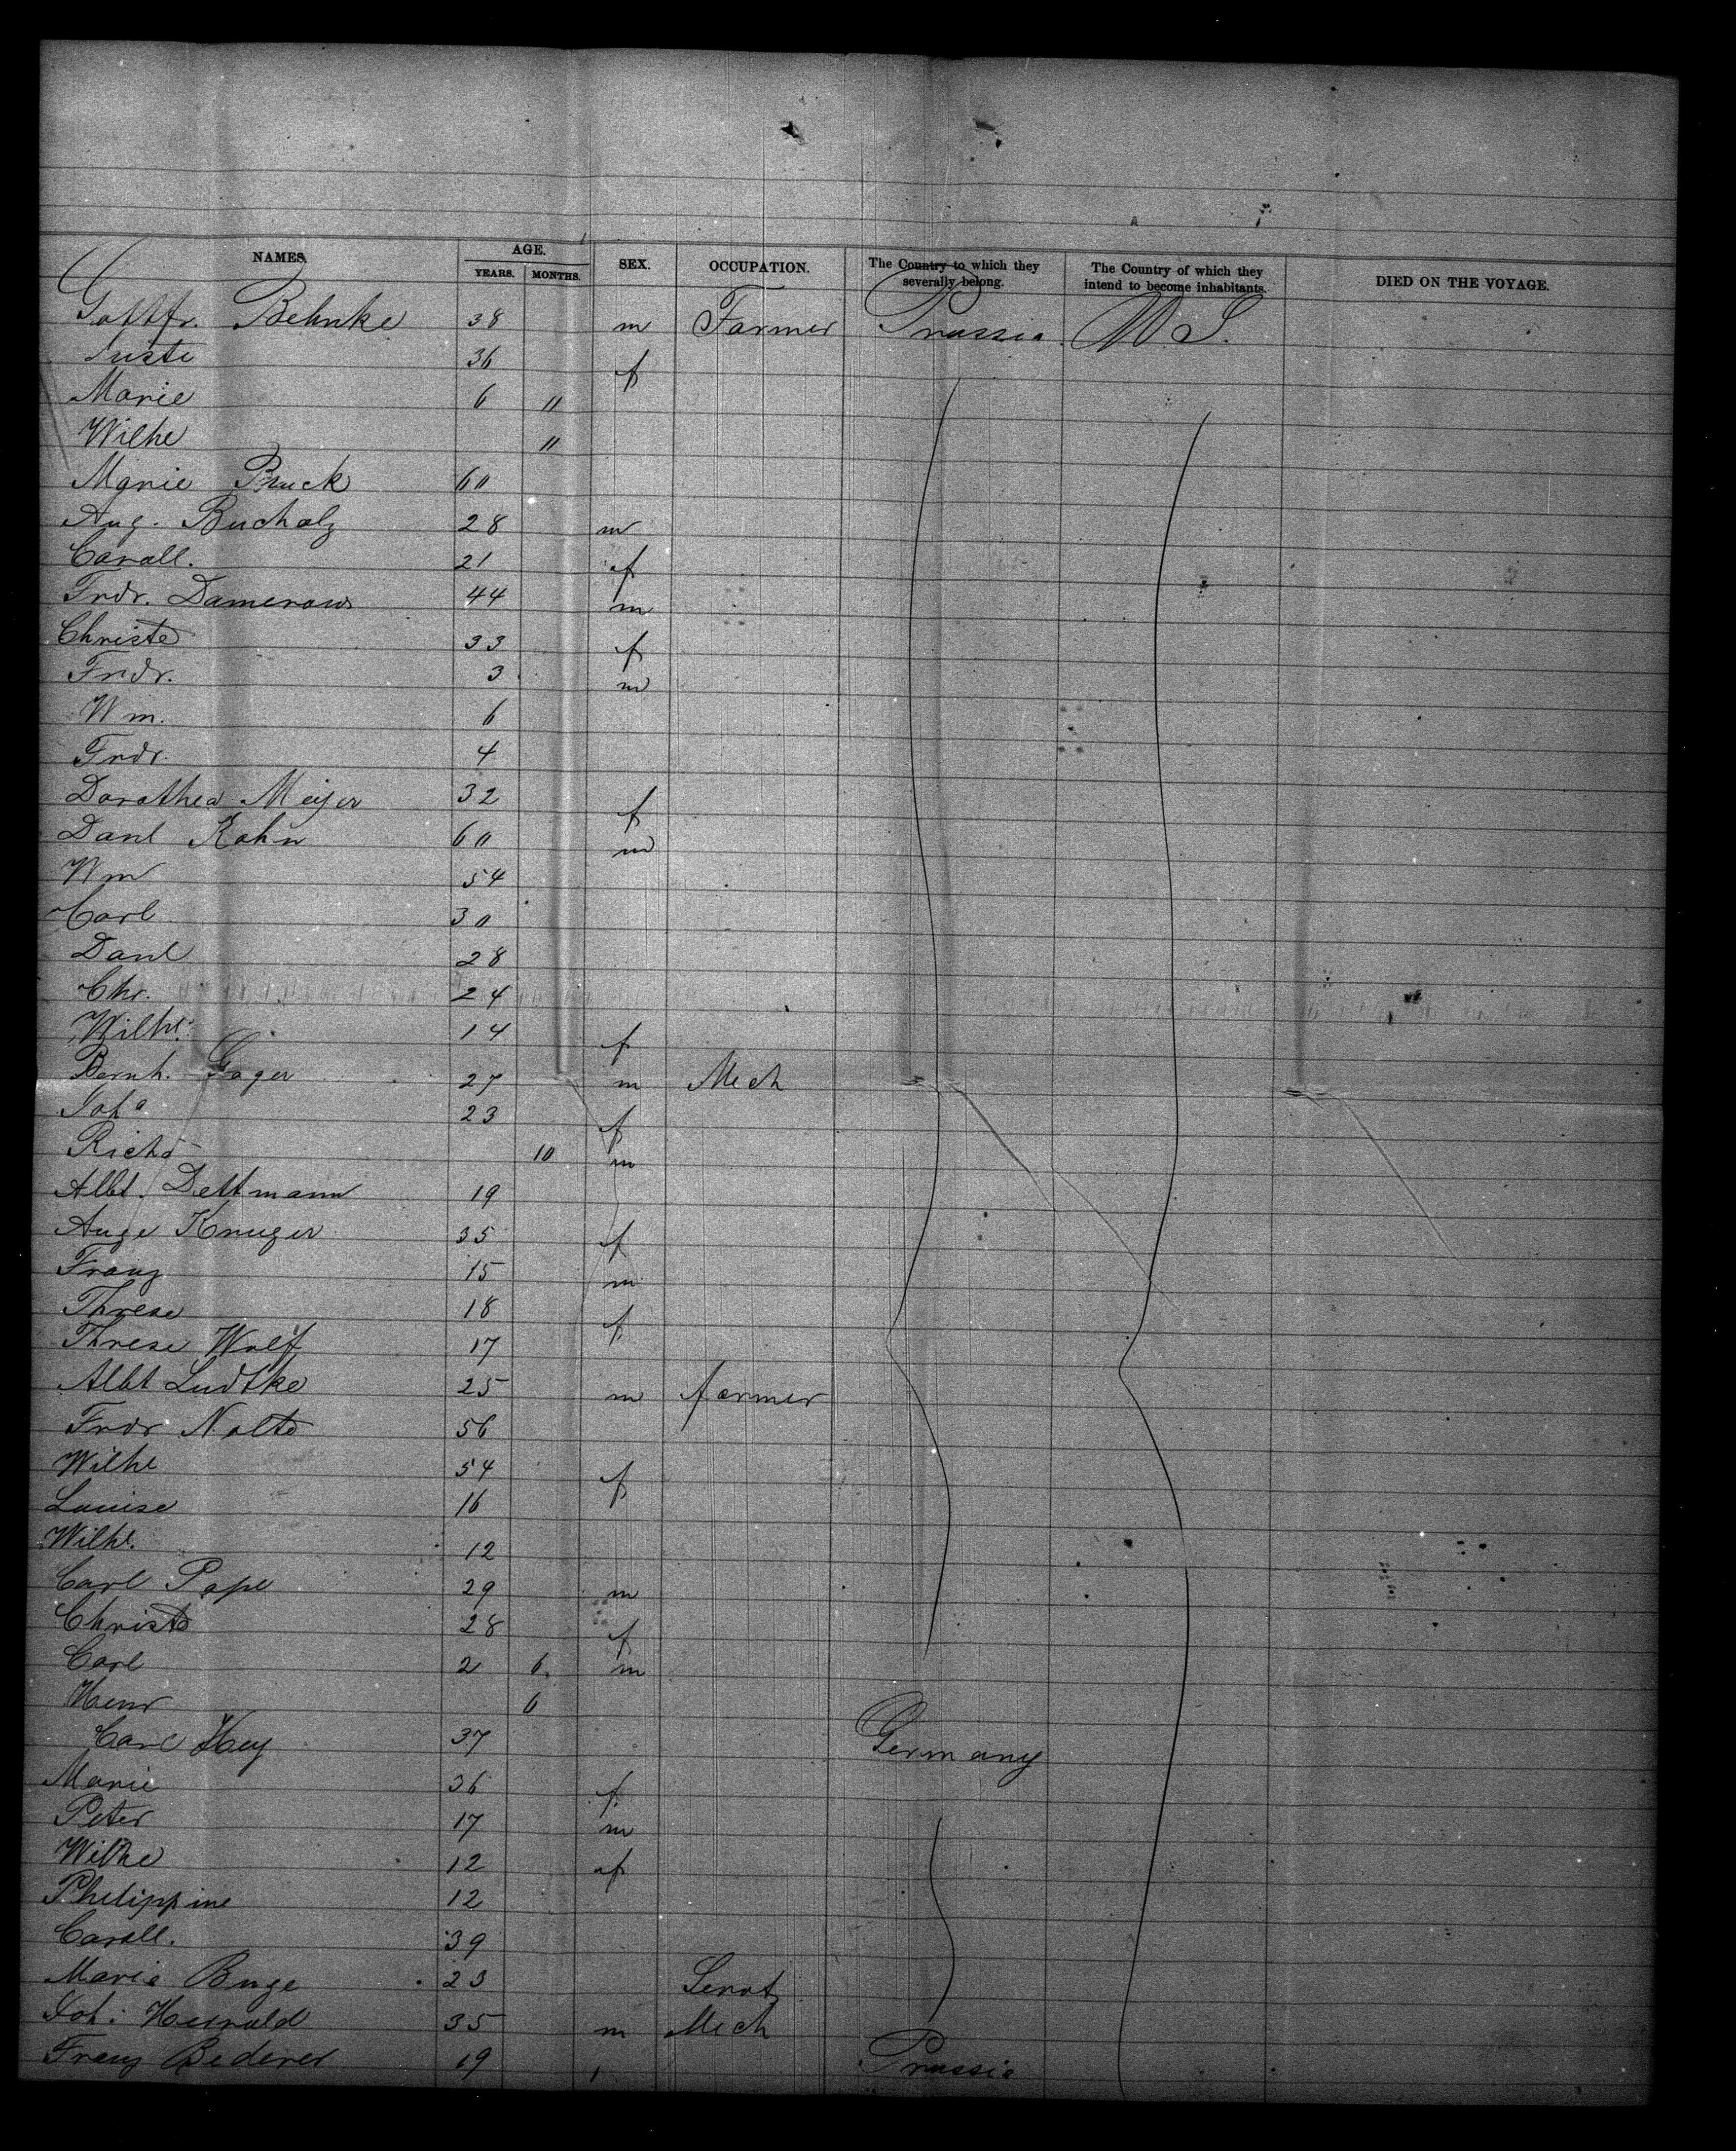 NAMES. AGE. SEX. OCCUPATION. The Country to which they severally belong. The Country of which they intend to become inhabitants. DIED ON THE VOYAGE.
YEARS. MONTHS.
Gottfr. Behnke 38 m Farmer Prussia U S.
Juste 36 f
Marie 6 11
Wilhe 11
Marie Bruck 60
Aug. Bucholz 28 m
Caroll. 21 f
Frdr. Damerow 44 m
Christe 33 f
Frdr. 3 m
Wm. 6
Frdr. 4
Dorothea Meyer 32 f
Danl Kohn 60 m
Wm 54
Carl 30
Danl 28
Chr. 24
Wilhe. 14 f
Bernh. Gager 27 m Mech
Joha 23 f
Richd 10 m
Albt. Dettmann 19
Auge Krueger 35 f
Franz 15 m
Threse 18 f
Threse Wolf 17
Albt Ludtke 25 m farmer
Frdr Nolte 56
Wilhe 54 f
Louise 16
Wilhe. 12
Carl Pape 29 m
Christe 28 f
Carl 2 6 m
Henr 6
Carl Hey 37 Germany
Marie 36 f
Peter 17 m
Wilhe 12 f
Philippine 12
Caroll. 39
Maria Buge 23 Servt
Joh: Herrold 35 m Mech
Franz Bederer 19 Prussia